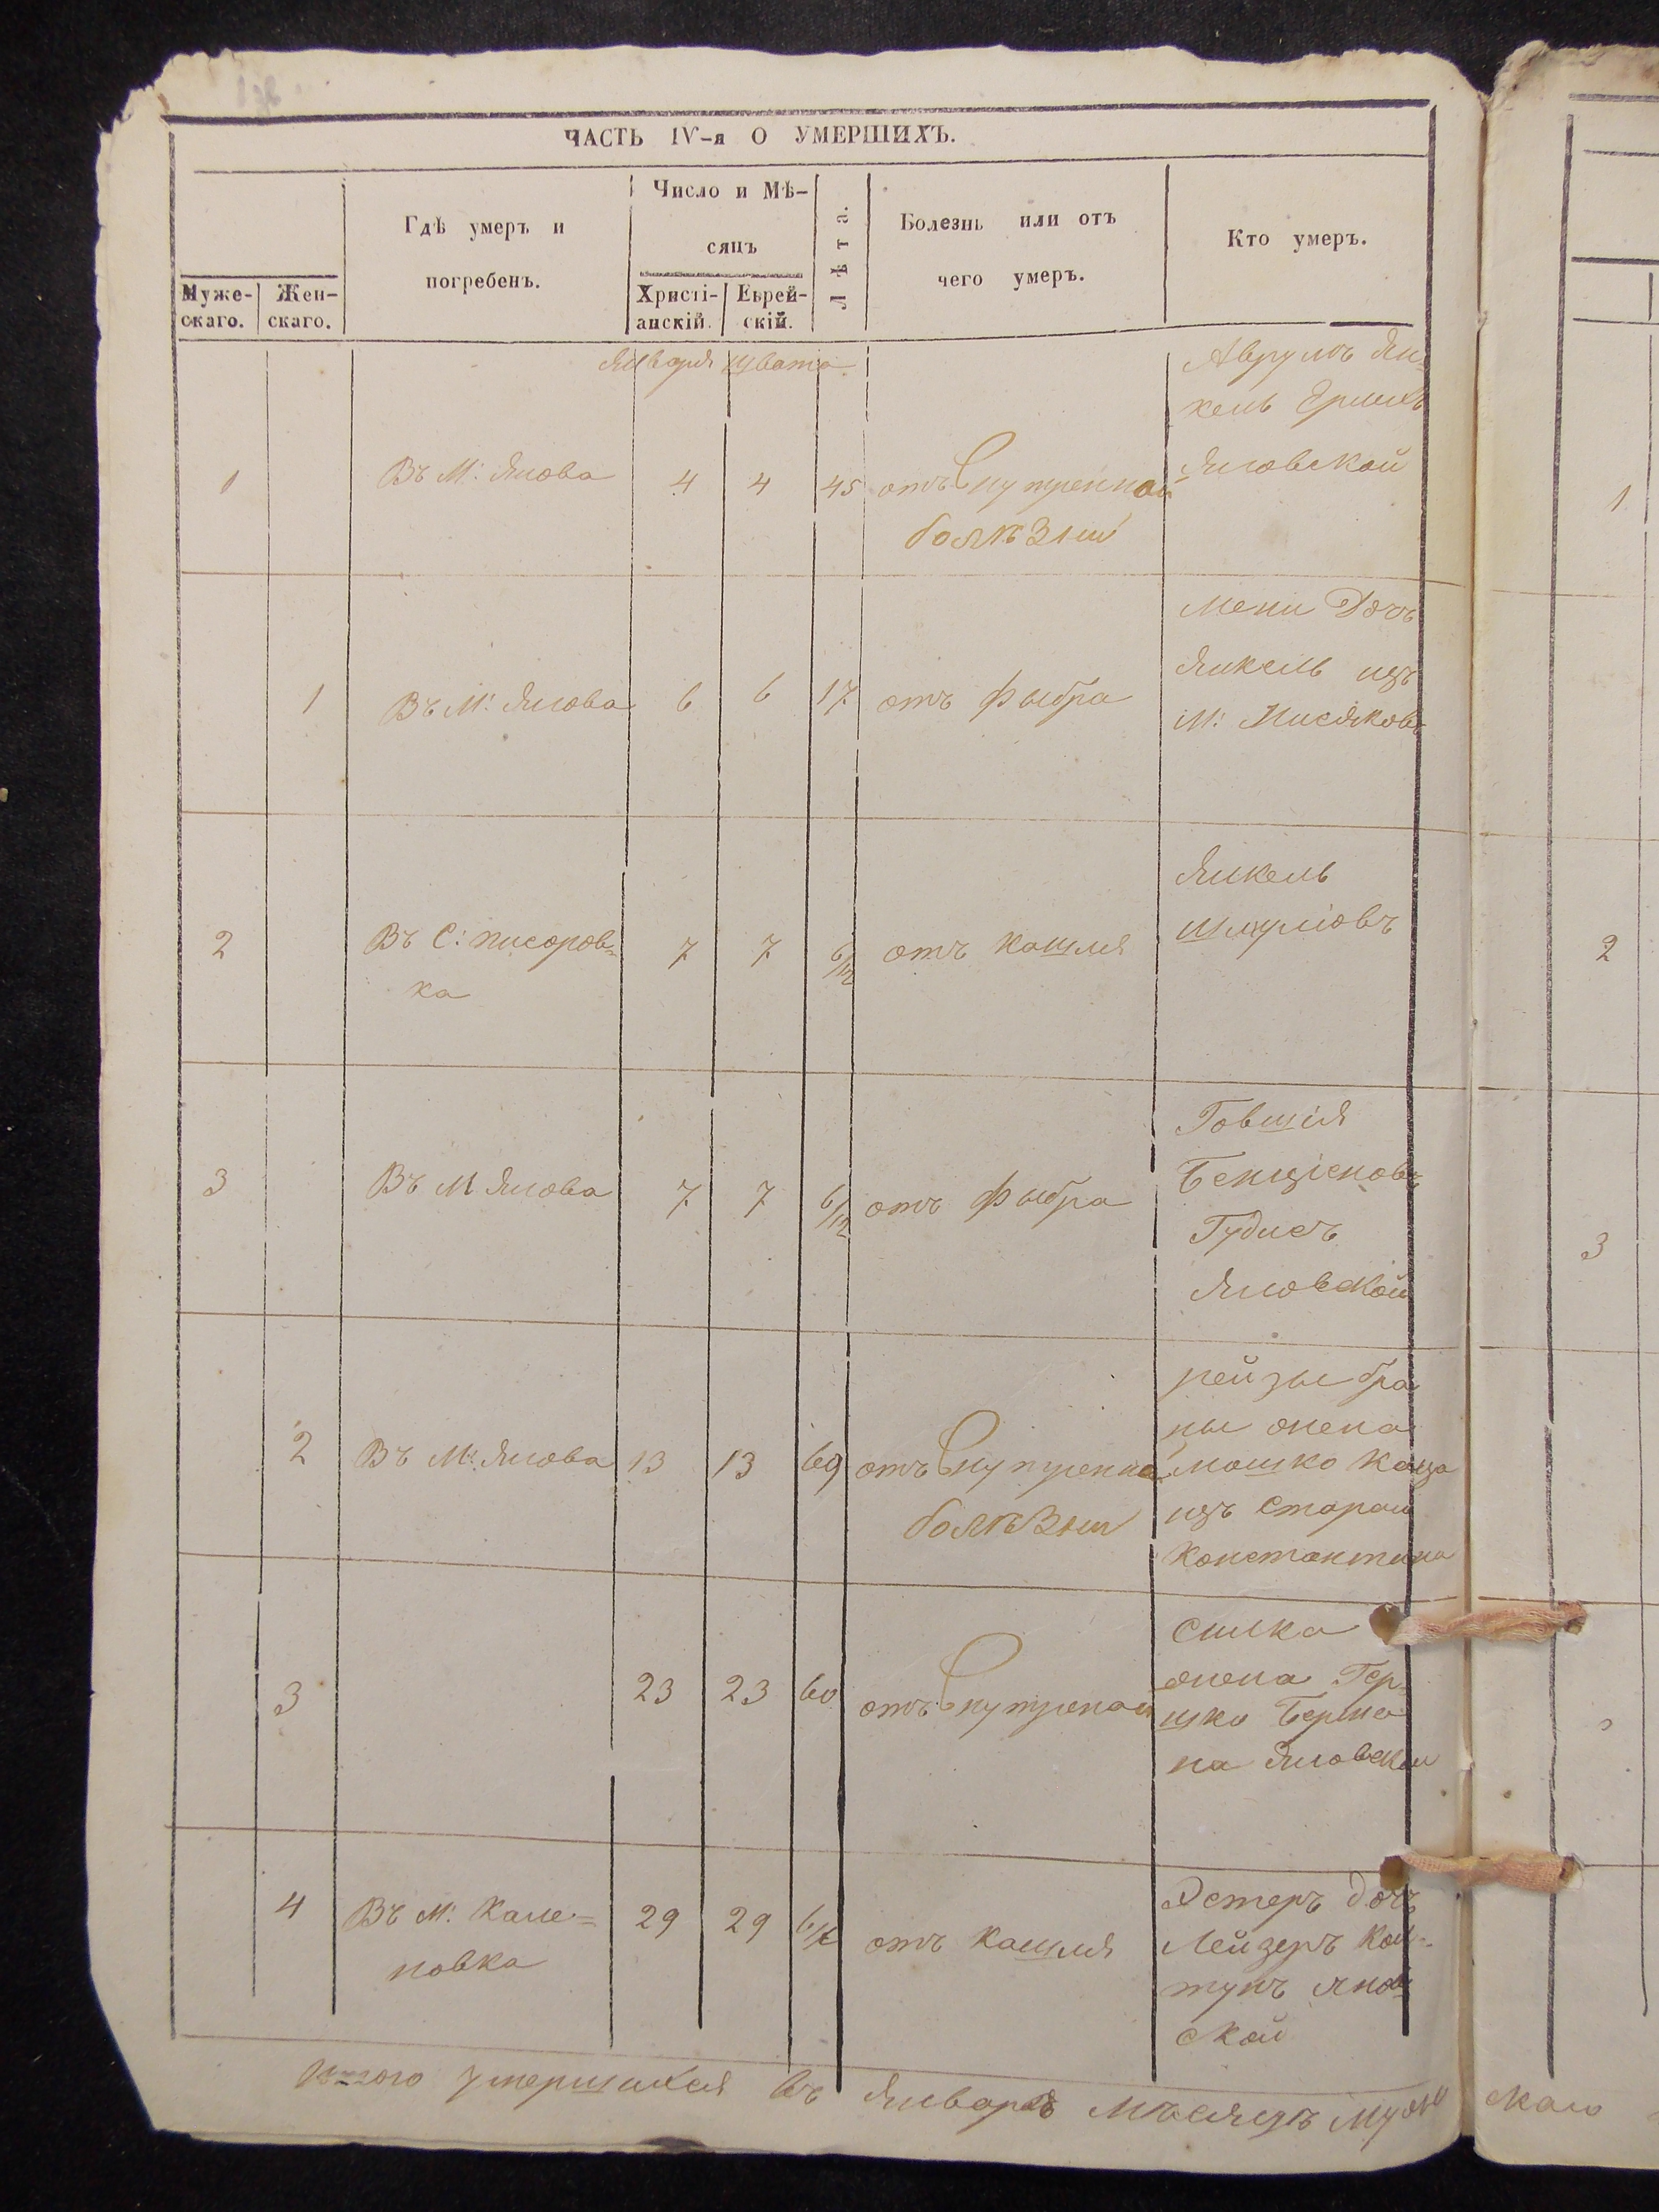 ЧАСТЬ IV-я О УМЕРШИХЪ.
Муже-
скаго.
Жен-
скаго.
Гдѣ умеръ и
погребенъ.
Число и Мѣ-
сяцъ
Христі-
анскій.
Еврей-
скій.
Лѣта.
Болезнь или отъ
чего умеръ.
Кто умеръ.
Января швата
1
Въ М: Янова
4 4 45
отъ Внутренной
болѣзни
Аврумъ Ян-
кель
Яновской
1
Въ М: Янова
6 6 17
отъ фыбра
Мени Дочъ
Янкель изъ
М:
2
Въ С: писоров-
ка
7 7 6/12
отъ кашля
Янкель
Шмулiовъ
3
Въ М Янова
7 7 6/12
отъ фыбра
Говшiя
Бенцiоновъ
Гудисъ
Яновской
2
Въ М: Янова
13 13 69
отъ Внутренной
болѣзни
рейзы бра
ны жена
мошко каца
изъ Стараи
Константина
3
23 23 60
отъ Внутреной
Силка
жена Гер-
шко Берма
на Яновскои
4
Въ М: Кале-
новка
29 29
отъ кашля
Эстеръ дочъ
Лейзеръ Кол-
тунъ янов-
ской
Итого умершихся въ Январѣ мѣсяцъ муже
1
2
3
скаго